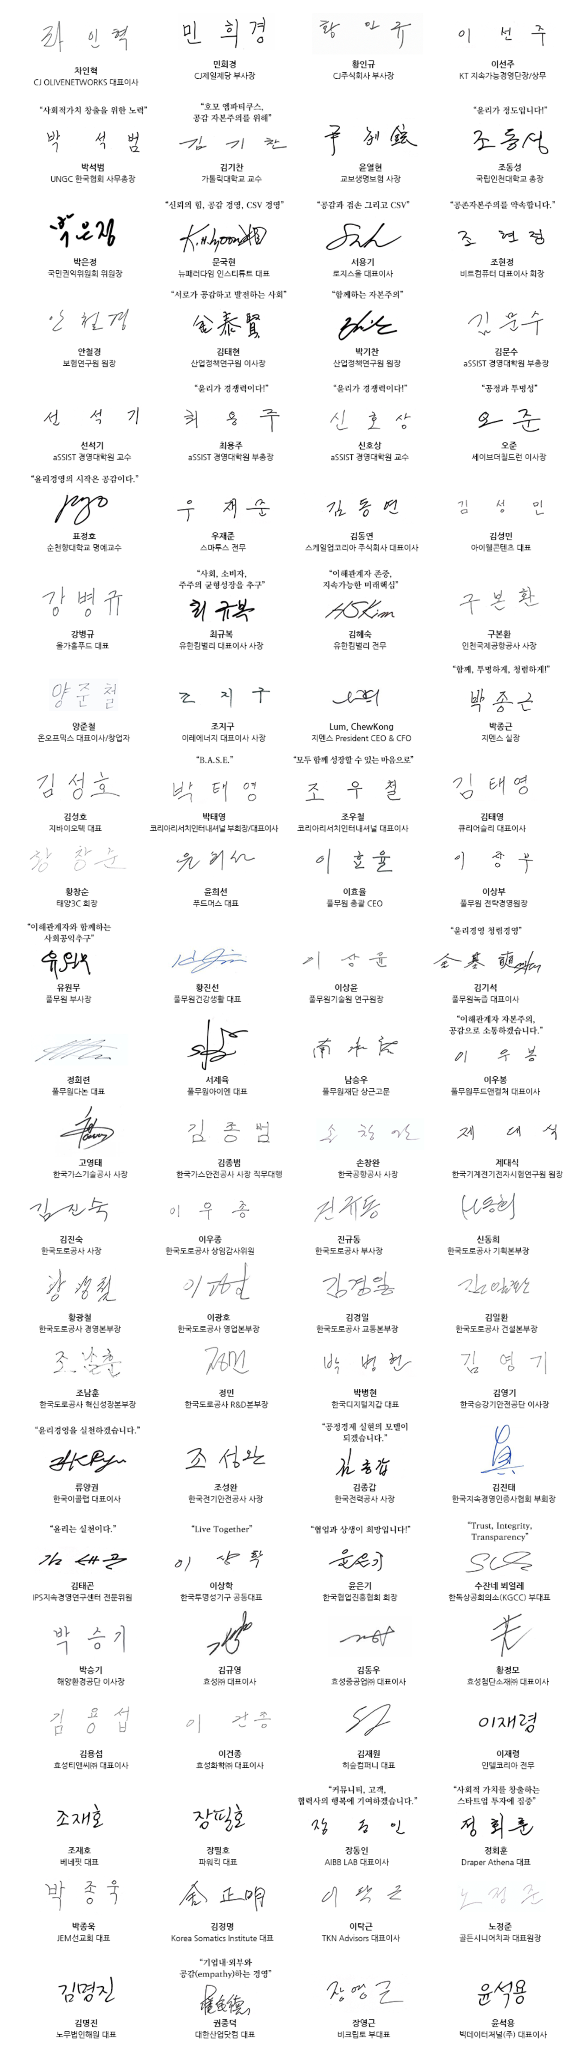 차인혁
CJ OLIVENETWORKS 대표이사
민희경
민희경
CJ제일제당 부사장
황인규
황인규
CJ주식회사 부사장
이선주
이선주
KT 지속가능경영단장/상무
“사회적가치 창출을 위한 노력”
박석범
박석범
UNGC 한국협회 사무총장
“호모 엠파티쿠스,
공감 자본주의를 위해”
김기찬
김기찬
가톨릭대학교 교수
윤열현
교보생명보험 사장
“윤리가 정도입니다!”
조동성
조동성
국립인천대학교 총장
박은정
박은정
국민권익위원회 위원장
“신뢰의 힘, 공감 경영, CSV 경영”
문국현
뉴패러다임 인스티튜트 대표
“공감과 겸손 그리고 CSV”
서용기
로지스올 대표이사
“공존자본주의를 약속합니다.”
조현정
조현정
비트컴퓨터 대표이사 회장
안철경
안철경
보험연구원 원장
“서로가 공감하고 발전하는 사회”
김태현
산업정책연구원 이사장
“함께하는 자본주의”
박기찬
산업정책연구원 원장
김문수
김문수
aSSIST 경영대학원 부총장
선석기
선석기
aSSIST 경영대학원 교수
“윤리가 경쟁력이다!”
최용주
최용주
aSSIST 경영대학원 부총장
“윤리가 경쟁력이다!”
신호상
신호상
aSSIST 경영대학원 교수
“공정과 투명성”
오준
오준
세이브더칠드런 이사장
“윤리경영의 시작은 공감이다.”
표정호
순천향대학교 명예교수
우재준
우재준
스마투스 전무
김동연
김동연
스케일업코리아 주식회사 대표이사
김성민
김성민
아이웰콘텐츠 대표
강병규
강병규
올가홀푸드 대표
“사회, 소비자,
주주의 균형성장을 추구”
최규복
최규복
유한킴벌리 대표이사 사장
“이해관계자 존중,
지속가능한 미래핵심”
HSKim
김혜숙
유한킴벌리 전무
구본환
구본환
인천국제공항공사 사장
양준철
양준철
온오프믹스 대표이사/창업자
조지구
조지구
이레에너지 대표이사 사장
Lum, ChewKong
지멘스 President CEO & CFO
“함께, 투명하게, 청렴하게!”
박종근
박종근
지멘스 실장
김성호
김성호
지바이오텍 대표
“B.A.S.E.”
박태영
박태영
코리아리서치인터내셔널 부회장/대표이사
“모두 함께 성장할 수 있는 마음으로”
조우철
조우철
코리아리서치인터내셔널 대표이사
김태영
김태영
큐리어슬리 대표이사
황창순
황창순
태양3C 회장
윤희선
윤희선
푸드머스 대표
이효율
이효율
풀무원 총괄 CEO
이상부
이상부
풀무원 전략경영원장
“이해관계자와 함께하는
사회공익추구”
유원무
유원무
풀무원 부사장
황진선
풀무원건강생활 대표
이상윤
이상윤
풀무원기술원 연구원장
“윤리경영 청렴경영”
김기석
풀무원녹즙 대표이사
정희련
풀무원다논 대표
서제육
풀무원아이엔 대표
남승우
풀무원재단 상근고문
“이해관계자 자본주의,
공감으로 소통하겠습니다.”
이우봉
이우봉
풀무원푸드앤컬처 대표이사
고영태
한국가스기술공사 사장
김종범
김종범
한국가스안전공사 사장 직무대행
손창완
손창완
한국공항공사 사장
제대식
제대식
한국기계전기전자시험연구원 원장
김진숙
김진숙
한국도로공사 사장
이우종
이우종
한국도로공사 상임감사위원
진규동
진규동
한국도로공사 부사장
신동희
한국도로공사 기획본부장
황광철
황광철
한국도로공사 경영본부장
이광호
한국도로공사 영업본부장
김경일
김경일
한국도로공사 교통본부장
김일환
한국도로공사 건설본부장
조남훈
조남훈
한국도로공사 혁신성장본부장
정민
정민
한국도로공사 R&D본부장
박병현
박병헌
한국디지털지갑 대표
김영기
김영기
한국승강기안전공단 이사장
“윤리경영을 실천하겠습니다.”
류양권
한국이콜랩 대표이사
조성완
조성완
한국전기안전공사 사장
“공정경제 실현의 모델이
되겠습니다.”
김종갑
김종갑
한국전력공사 사장
김진태
한국지속경영인증사협회 부회장
“윤리는 실천이다.”
김태곤
김태곤
IPS지속경영연구센터 전문위원
“Live Together”
이상학
이상학
한국투명성기구 공동대표
“협업과 상생이 희망입니다!”
윤은기
윤은기
한국협업진흥협회 회장
“Trust, Integrity,
Transparency”
수잔네 뵈얼레
한독상공회의소(KGCC) 부대표
박승기
박승기
해양환경공단 이사장
김규영
효성㈜ 대표이사
김동우
효성중공업㈜ 대표이사
황정모
효성첨단소재㈜ 대표이사
김용섭
김용섭
효성티앤씨㈜ 대표이사
이건종
이건종
효성화학㈜ 대표이사
김재원
히슬컴퍼니 대표
이재령
이재령
인텔코리아 전무
조재호
조재호
베네핏 대표
장필호
장필호
파워킥 대표
“커뮤니티, 고객,
협력사의 행복에 기여하겠습니다.”
장동인
장동인
AIBB LAB 대표이사
“사회적 가치를 창출하는
스타트업 투자에 집중”
정회훈
정회훈
Draper Athena 대표
박종욱
박종욱
JEM선교회 대표
金正明
김정명
Korea Somatics Institute 대표
이탁근
이탁근
TKN Advisors 대표이사
노정준
노정준
골든시니어치과 대표원장
김명진
김명진
노무법인해원 대표
“기업내·외부와
공감(empathy)하는 경영”
권종덕
대한산업닷컴 대표
장영근
장영근
비크립토 부대표
윤석용
윤석용
빅데이터저널(주) 대표이사